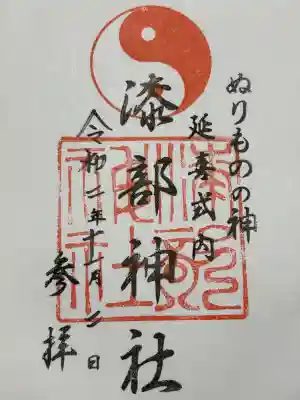 ぬりものの神
延喜式内
漆部神社
令和二年十一月二日
参拝